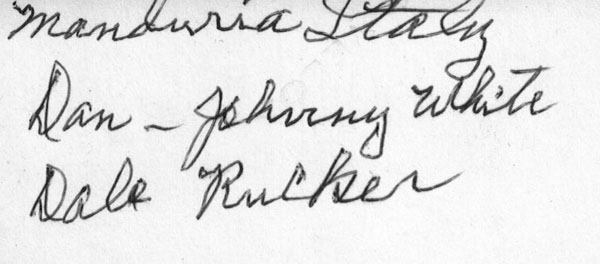 Manduria Italy
Dan - Johnny White
Dale Rucker